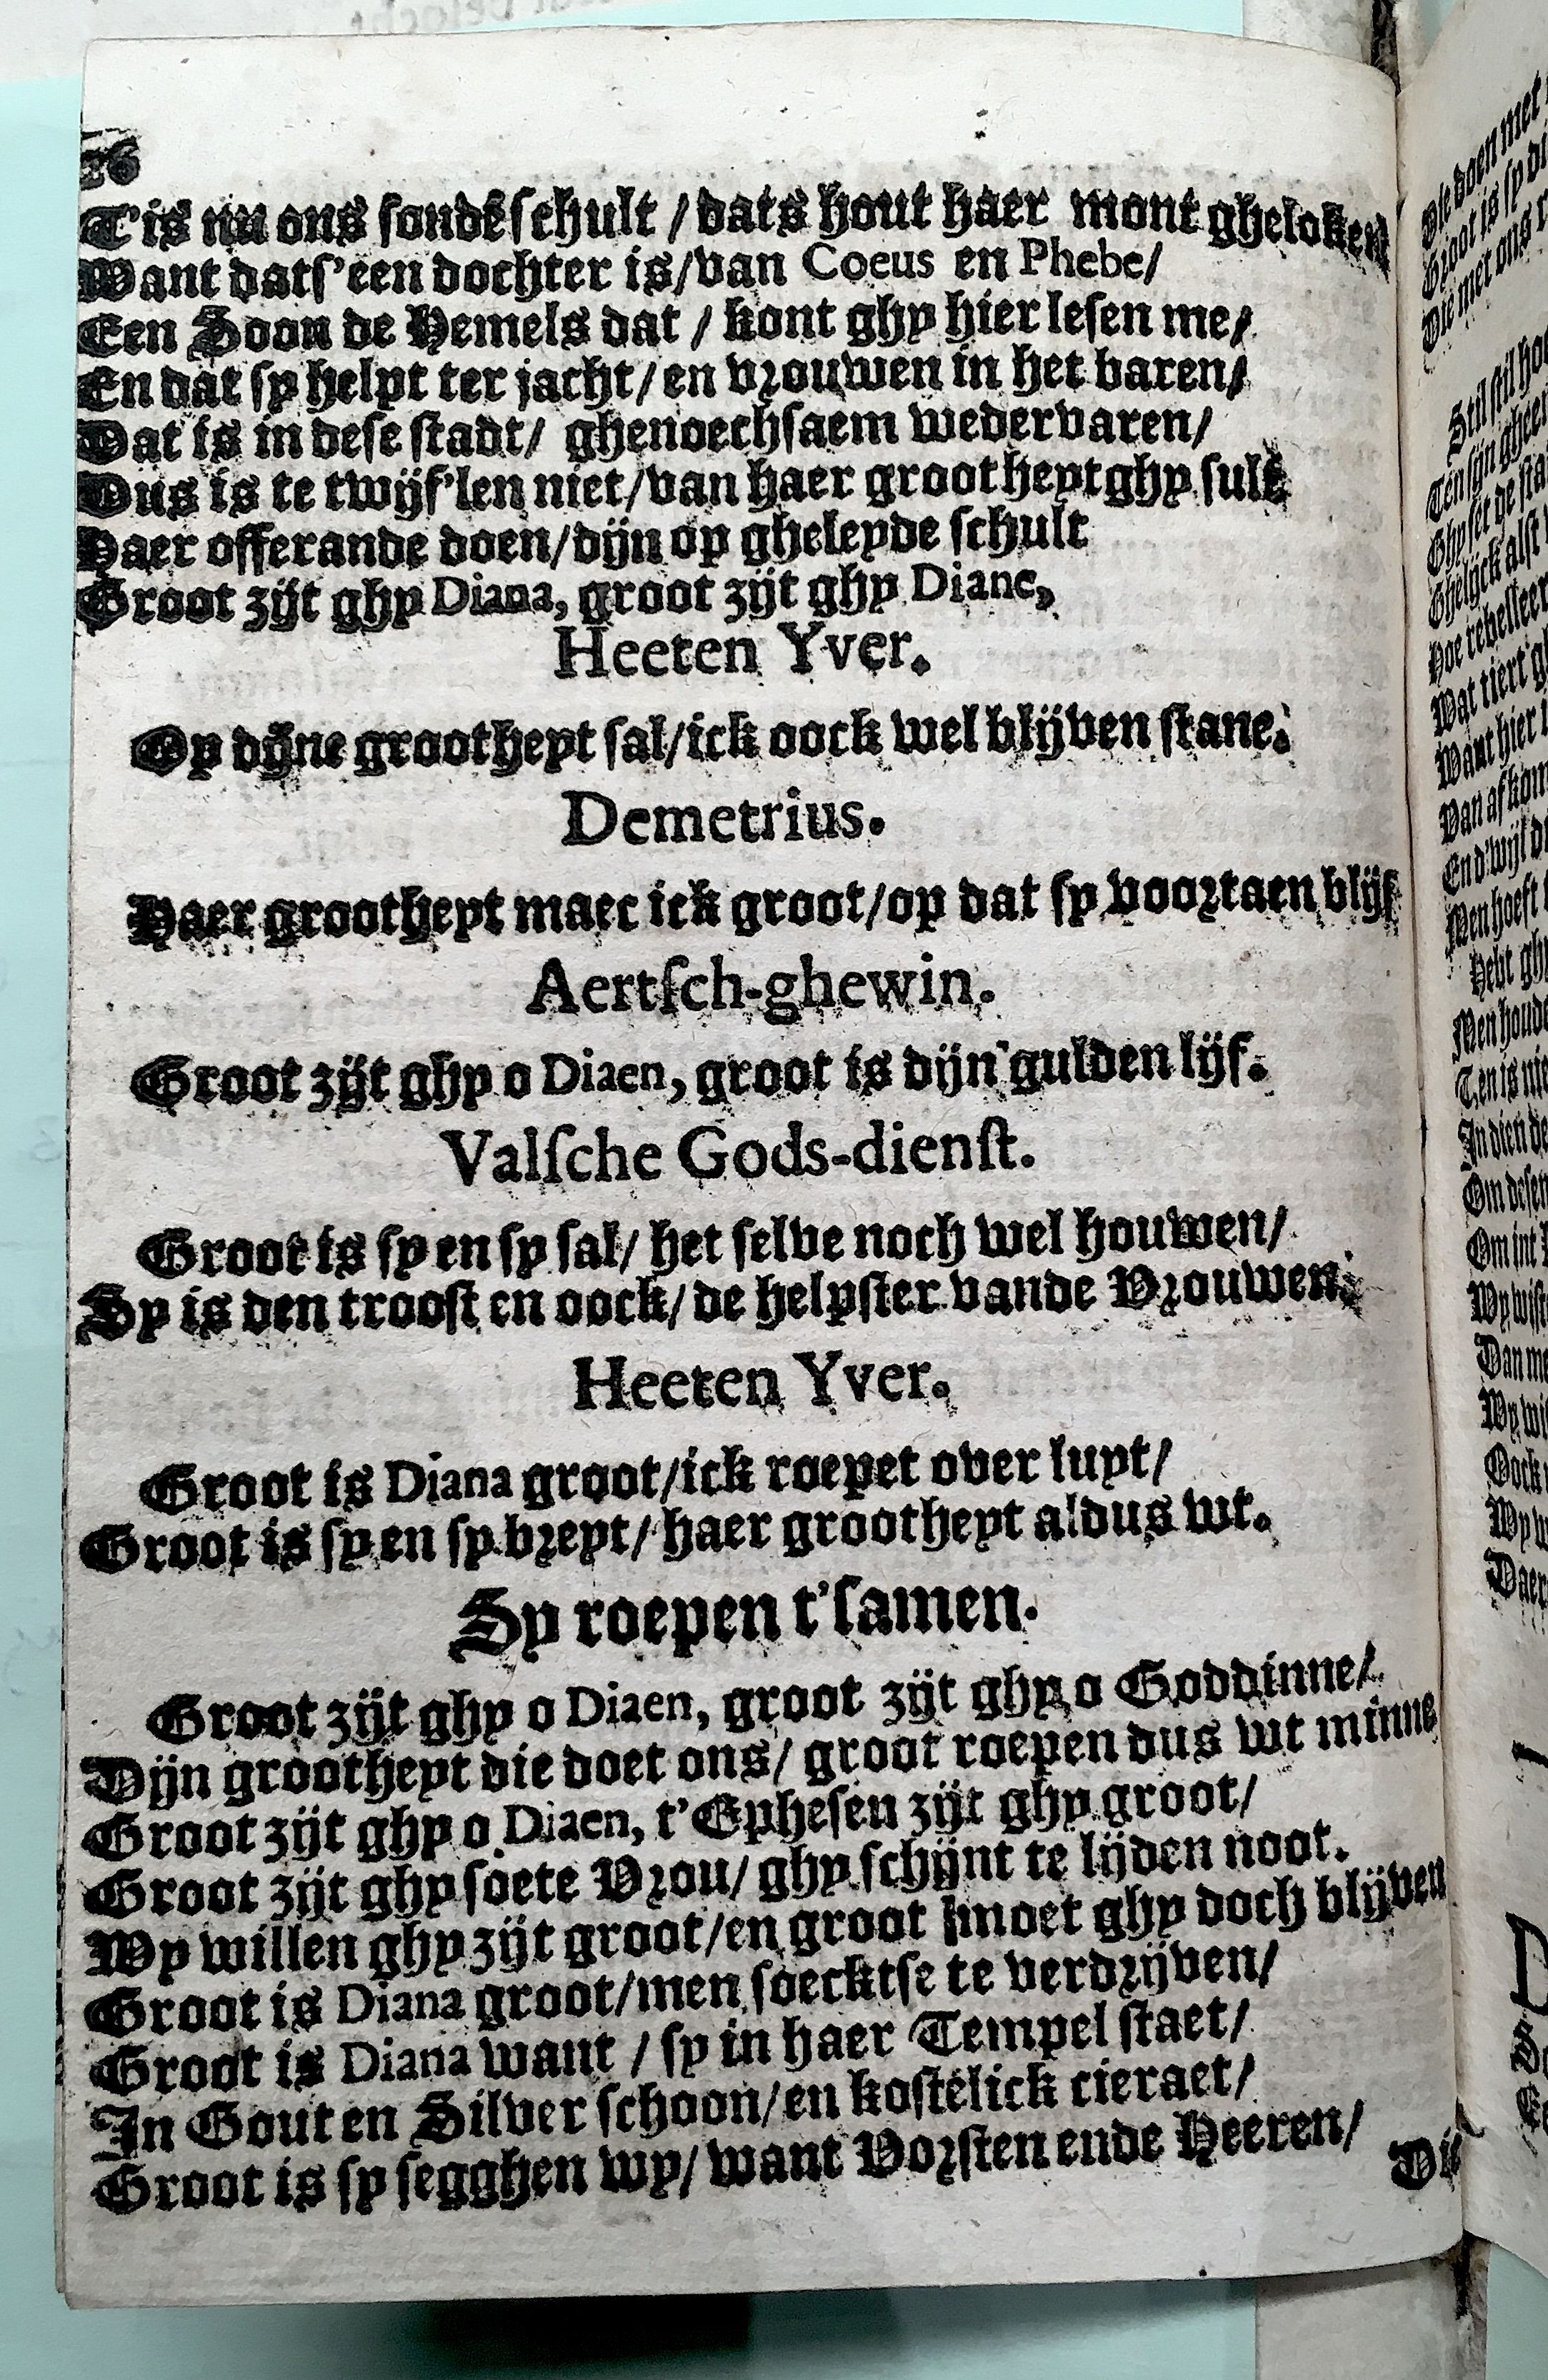 26
T'is nu ons sondē schult / dats hout haer mont gheloken
Want dats'een dochter is/van Coeus en Phebe/
Een Soon de Hemels dat / kont ghy hier lesen me/
En dat sy helpt ter jacht/en vrouwen in het baren/
Dat is in dese stadt/ ghenoechsaem wedervaren/
Dus is te twijf'len niet/van haer grootheyt ghy sult
Haer offerande doen/dijn op gheleyde schult
Groot zijt ghy Diana, groot zijt ghy Diane,
Heeten Yver.
Op dijne grootheyt sal/ick oock wel blijven stane.
Demetrius.
Haer grootheyt maec ick groot/op dat sy voortaen blijf
Aertsch-ghewin.
Groot zijt ghy o Diaen, groot is dijn gulden lijf.
Valsche Gods-dienst.
Groot is sy en sy sal/ het selve noch wel houwen/
Sy is den troost en oock/ de helpster vande Vrouwen.
Heeten Yver.
Groot is Diana groot/ick roepet over luyt/
Groot is sy en sy breyt/ haer grootheyt aldus wt.
Sy roepen t'samen.
Groot zijt ghy o Diaen, groot zijt ghy o Goddinne/
Dijn grootheyt die doet ons/ groot roepen dus wt minne
Groot zijt ghy o Diaen, t'Ephesen zijt ghy groot/
Groot zijt ghy soete Vrou/ ghy schijnt te lijden noot.
Wy willen ghy zijt groot/en groot moet ghy doch blijven
Groot is Diana groot/men soecktse te verdrijven/
Groot is Diana want / sy in haer Tempel staet/
In Gout en Silver schoon/en kostelick cieraet/
Groot is sy segghen wy/ want Vorsten ende Heeren/
Die